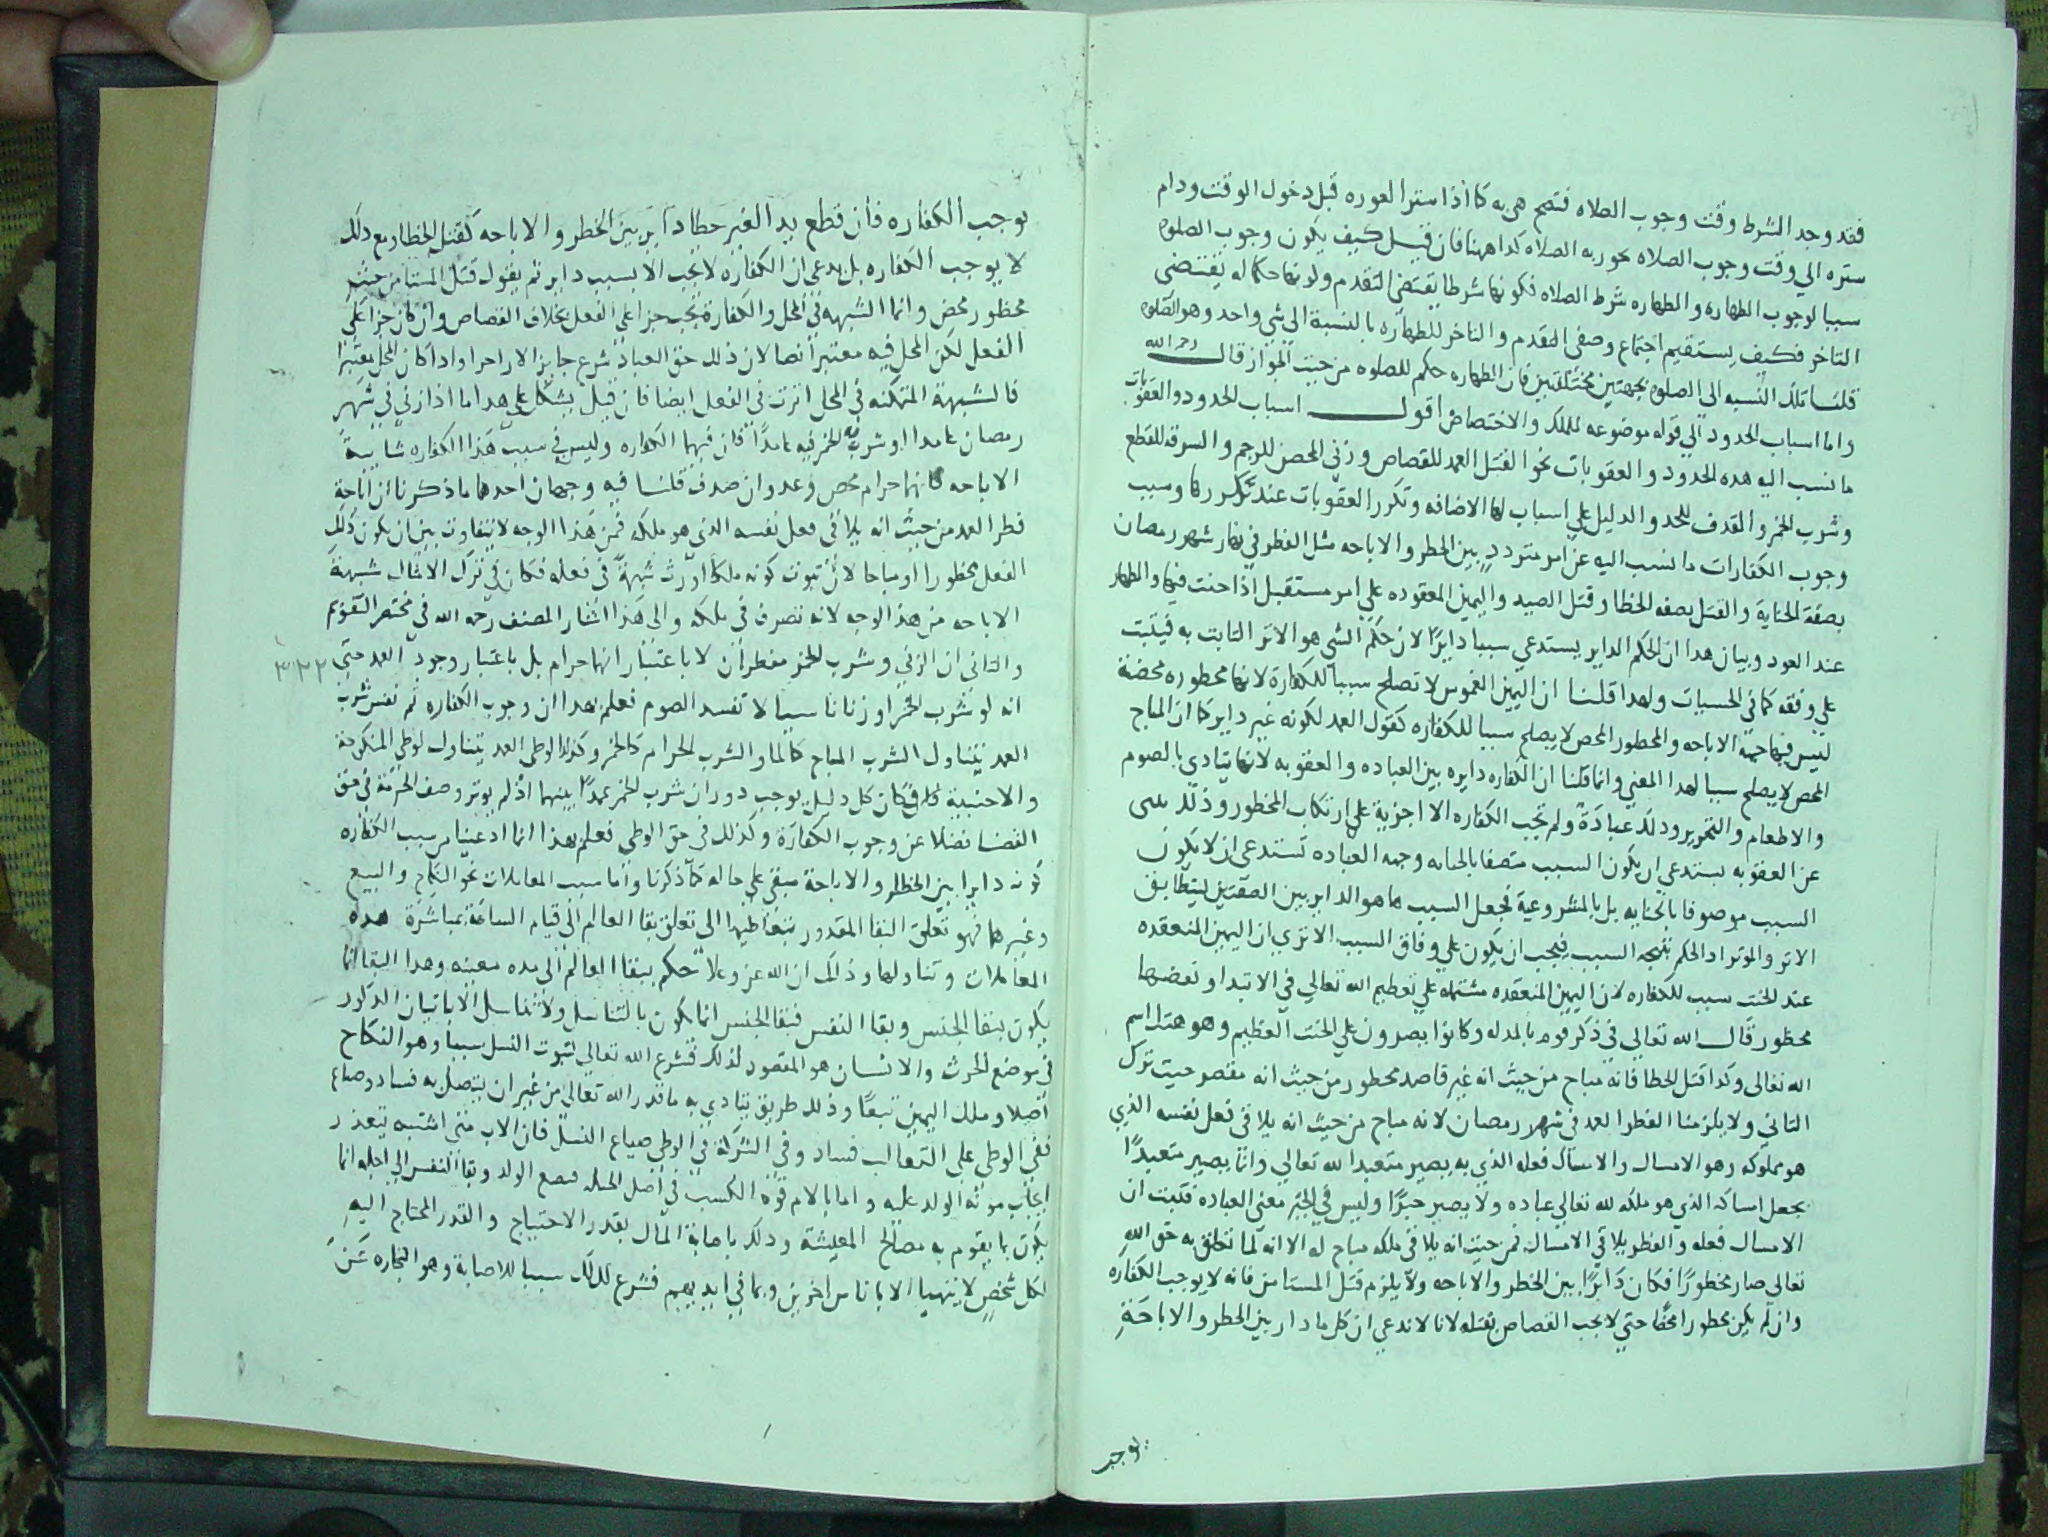 فقد وجد الشرط وقت وجوب الصلاه فتصح هى به كما اذا ستر العوره قبل دخول الوقت ودام
ستره الي وقت وجوب الصلاه يجوز به الصلاه كذا ههنا فان قيل كيف يكون وجوب الصلوه
سببا لوجوب الطهاره والطهاره شرط الصلاه فكونها شرطا يقتضى التقدم وكونها حكما له يقتضى
التاخر فكيف يستقيم اجتماع وصفى التقدم والتاخر للطهاره بالنسبة الى شي واحد وهو الصلوه
قلنا تلك النسبه الى الصلوه بجهتين مختلفتين فان الطهاره حكم للصلوه من حيث الجواز قال رحمه الله
واما اسباب الحدود الي قوله موضوعه للملك والاختصاص اقول اسباب الحدود والعقوبات
ما نسب اليه هذه الحدود والعقوبات نحو القتل العمد للقصاص وزني المحصن للرجم والسرقه للقطع
وشرب الخمر والقذف للحد والدليل علي اسباب لها الاضافه وتكرر العقوبات عند تكررها وسبب
وجوب الكفارات ما نسب اليه عن امر متردد بين الحظر والاباحه مثل الفطر في نهار شهر رمضان
بصفة الجناية والقتل بصفه الخطا وقتل الصيد واليمين المعقوده علي امر مستقبل اذا حنث فيها والظهار
عند العود وبيان هذا ان الحكم الداير يستدعي سببا دايرًا لان حكم الشي هو الاثر الثابت به فيثبت
علي وفقه كما في الحسيات ولهذا قلنا ان اليمين الغموس لا تصلح سببا للكفارة لانها محظوره محضة
ليس فيها جهة الاباحه والمحظور المحض لا يصلح سببا للكفاره كقول العمد لكونه غير داير كما ان المباح
المحض لا يصلح سببا لهذا المعني وانما قلنا ان الكفاره دايره بين العباده والعقوبه لانها تتادي بالصوم
والاطعام والتحرير وذلك عبادة ولم تجب الكفاره الا اجزية علي ارتكاب المحظور وذلك
عن العقوبه يستدعي ان يكون السبب متصفا بالجنايه وجهه العباده تستدعى ان لا يكون
السبب موصوفا بالجنايه بل بالمشروعية فجعل السبب ما هو الداير بين الصفتين ليتطابق
الاثر والموثر اذ الحكم نتيجه السبب فيجب ان يكون علي وفاق السبب الا تري ان اليمين المنعقده
عند الحنث سبب للكفاره لان اليمين المنعقده مشتمله علي تعظيم الله تعالي في الابتدا ونقضها
محظور قال الله تعالي في ذكر قوم بالمذله وكانوا يصرون علي الحنث العظيم وهو هتك اسم
الله تعالى وكذا قتل الخطا فانه مباح من حيث انه غير قاصد محظور من حيث انه مقصر حيث ترك
التاني ولا يلزمنا الفطر العمد في شهر رمضان لانه مباح من حيث انه يلاقى فعل نفسه الذي
هو مملوكه وهو الامساك والامساك فعله الذي به يصير متعبدا لله تعالي وانما يصير متعبدًا
بجعل امساكه الذي هو ملكه لله تعالي عباده ولا يصير جبرًا وليس في الجبر معنى العباده فثبت ان
الامساك فعله والفطر يلاقي الامساك فمن حيث انه يلاقى ملكه مباح له الا انه لما تعلق به حق الله
تعالى صار محظورًا فكان دايرًا بين الحظر والاباحه ولا يلزم قتل المستامن فانه لا يوجب الكفاره
وان لم يكن محظورا محضا حتي لا يجب القصاص بقتله لانا لا ندعي ان كل ما دار بين الحظر والاباحة
يوجب
يوجب الكفاره فان قطع يد الغير خطا داير بين الحظر والاباحه كقتل الخطا ومع ذلك
لا يوجب الكفاره بل يدعي ان الكفاره لا تجب الا بسبب داير ثم يقول قتل المستامن حيث
محظور محض وانما الشبهه في المحل والكفارة تجب جزا علي الفعل بخلاف القصاص وان كان جزا علي
الفعل لكن المحل فيه معتبر ايضا لان ذلك حق العباد شرع جابرا لا زاجرا واذا كان المحل معتبرا
فالشبهة المتمكنه في المحل اثرت في الفعل ايضا فان قيل يشكل علي هذا ما اذا زني في شهر
رمضان عامدا او شرب الخمر فيه عامدًا فان فيهما الكفاره وليس في سبب هذا الكفاره شايبة
الاباحه فانهما حرام محض وعدوان صرف قلنا فيه وجهان احدهما ما ذكرنا ان اباحة
فطر العمد من حيث انه يلاقي فعل نفسه الذي هو ملكه فمن هذا الوجه لا يتفاوت بين ان يكون ذلك
الفعل محظورا او مباحا لان ثبوت كونه ملكا اورث شبهة في فعله فكان في ترك الامتثال شبهة
الاباحه من هذا الوجه لانه تصرف في ملكه والى هذا اشار المصنف رحمه الله في مختصر التقويم
والثانى ان الزني وشرب الخمر مفطران لا باعتبار انها حرام بل باعتبار وجود العمد حتي ٣٢٢
انه لو شرب الخمر او زنا ناسيا لا تفسد الصوم فعلم بهذا ان وجوب الكفاره ثم نفس شرب
العمد يتناول الشرب المباح كالماء والشرب الحرام كالخمر وكذا الوطى العمد يتناول لوطي المنكوحة
والاجنبية فكان كل دليل يوجب دوران شرب الخمر عمدًا بينهما اذ لم يوثر وصف الحرمة في حق
القضا فضلا عن وجوب الكفارة وكذلك في حق الوطى فعلم بهذا انما ادعينا من سبب الكفاره
كونه دايرا بين الحظر والاباحة مبقى علي حاله كما ذكرنا واما سبب المعاملات نحو النكاح والبيع
وغيرهما فهو تعلق البقا المقدور بتعاطيها الى تعلق بقا العالم الى قيام الساعة بمباشرة هذه
المعاملات وتناولها وذلك ان الله عز وعلا حكم ببقا العالم الى مده معينه وهذا البقا انما
يكون ببقا الجنس وبقا النفس فبقا الجنس انما يكون بالتناسل ولا تناسل الا باتيان الذكور
في موضع الحرث والانسان هو المقصود لذلك فشرع الله تعالي لثبوت النسل سببا وهو النكاح
اصلا وملك اليمين تبعًا وذلك طريق يتادي به ما قدر الله تعالي من غير ان يتصل به فساد وضياع
ففي الوطي علي التغالب فساد وفي الشركة في الوطى ضياع النسل فان الاب متي اشتبه يتعذر
ايجاب مونه الولد عليه وما بالام قوه الكسب في اصل الجبله فيضيع الولد وبقا النفس الي اجله انما
يكون بما يقوم به مصالح المعيشة وذلك باصابة المال بقدر الاحتياج والقدر المحتاج اليه
لكل شخص لا يتهيا الا باناس اخرين وبما في ايديهم فشرع لذلك سببا للاصابة وهو التجاره عن